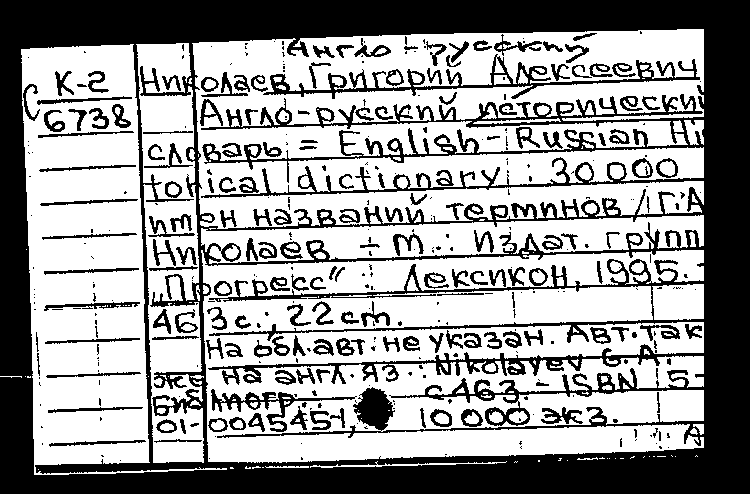 Англо-русский
К-2 Николаев, Григорий Алексеевич
6738 Англо-русский исторический
словарь = English-Russian His
torical dictionary : 30000
имен названий терминов / Г.А
Николаев. - М.: Издат. групп
„Прогресс“ : Лексикон, 1995. -
463 с.; 22 cm.
На обл. авт. не указан. Авт. так
же на англ. яз.: Nikolayev G. A.
Библиогр.: с. 463. - ISBN 5-
01-004545-1, 10000 экз.
А